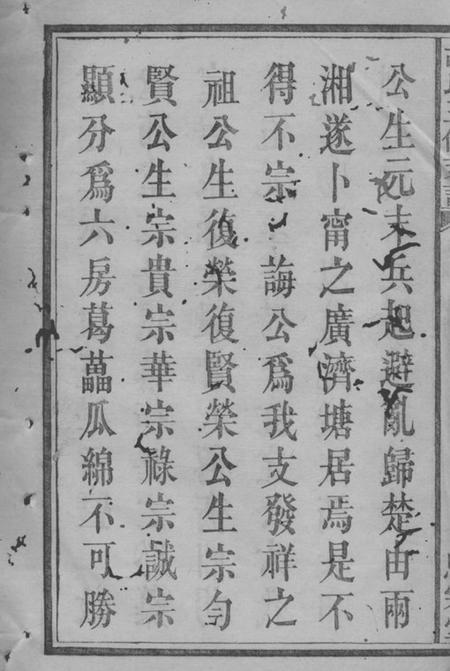 公生元末兵起避亂歸楚由兩
湘遂卜甯之廣濟塘居焉是不
得不宗 誨公爲我支發祥之
祖公生復榮復賢榮公生宗勻
賢公生宗貴宗華宗祿宗誠宗
顯分爲六房葛藟瓜綿不可勝